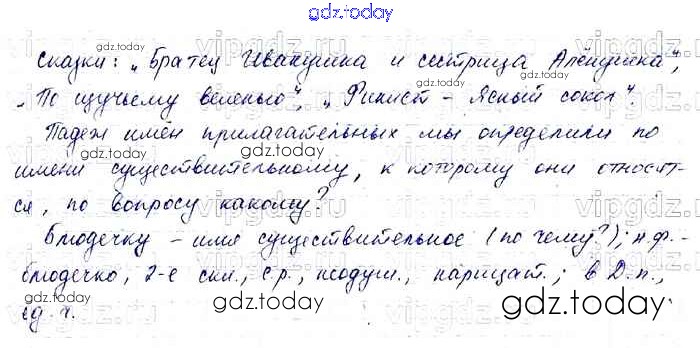 gdz.today
Сказки: „Братец Иванушка и сестрица Алёнушка“,
„По щучьему веленью“, „Финист – Ясный сокол“.
Падеж имён прилагательных мы определили по
имени существительному, к которому они относят-
ся, по вопросу какому?
Блюдечку – имя существительное (по чему?); н.ф. –
блюдечко, 2-е скл., с.р., неодуш., нарицат.; в Д.п.,
ед.ч.